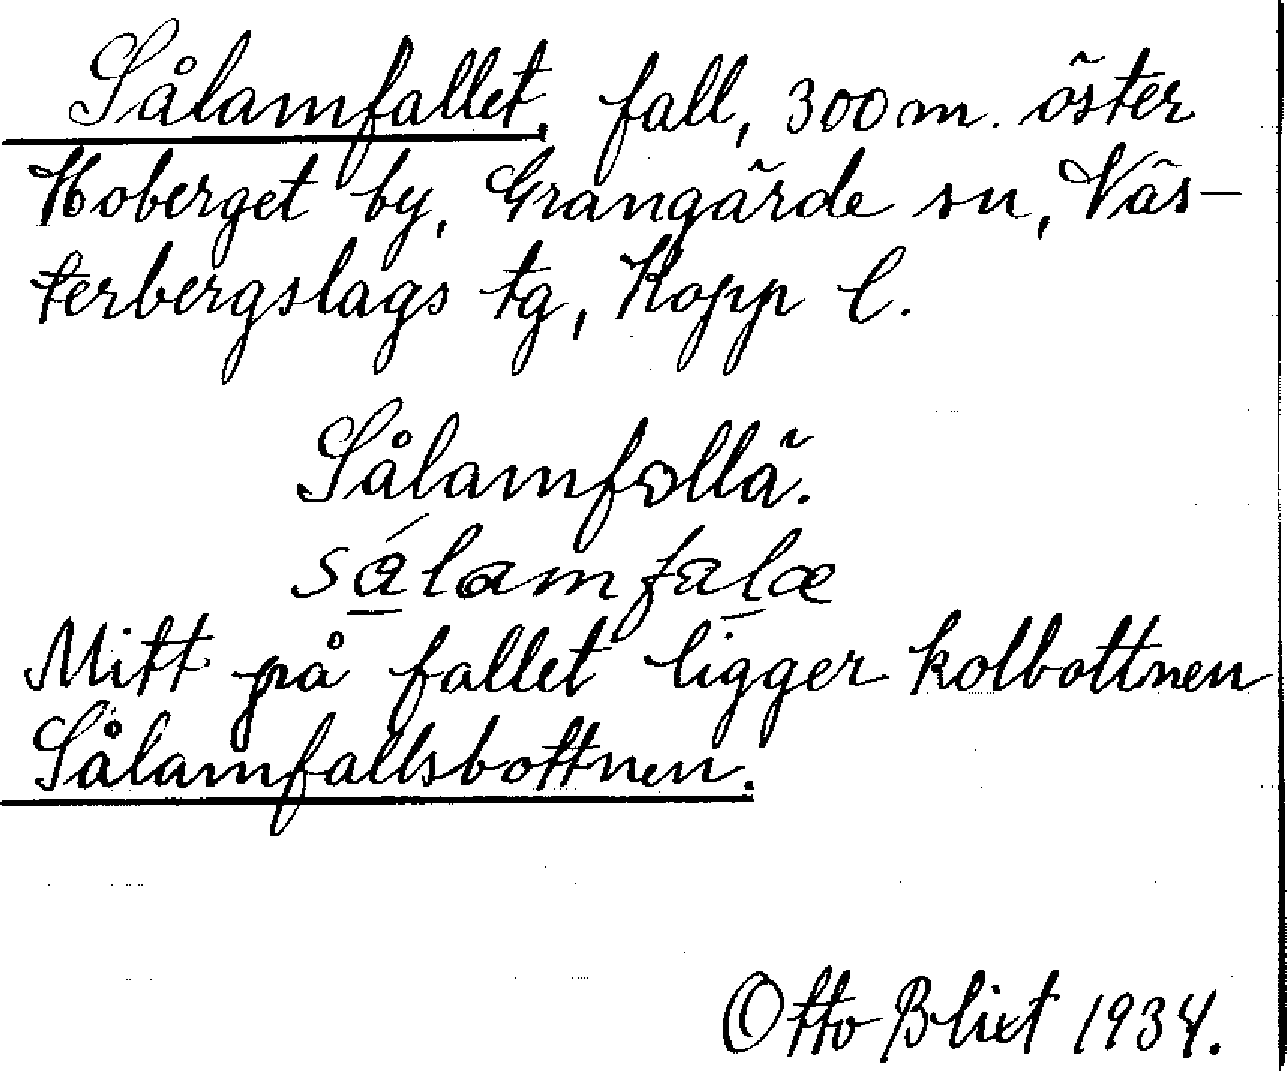 Sålamfallet, fall, 300 m. öster
Hoberget by, Grangärde sn, Väs-
terbergslags tg, Kopp l.
Sålamfollä.
sálamfalæ
Mitt på fallet ligger kolbottnen
Sålamfallsbottnen.
Otto Blixt 1934.